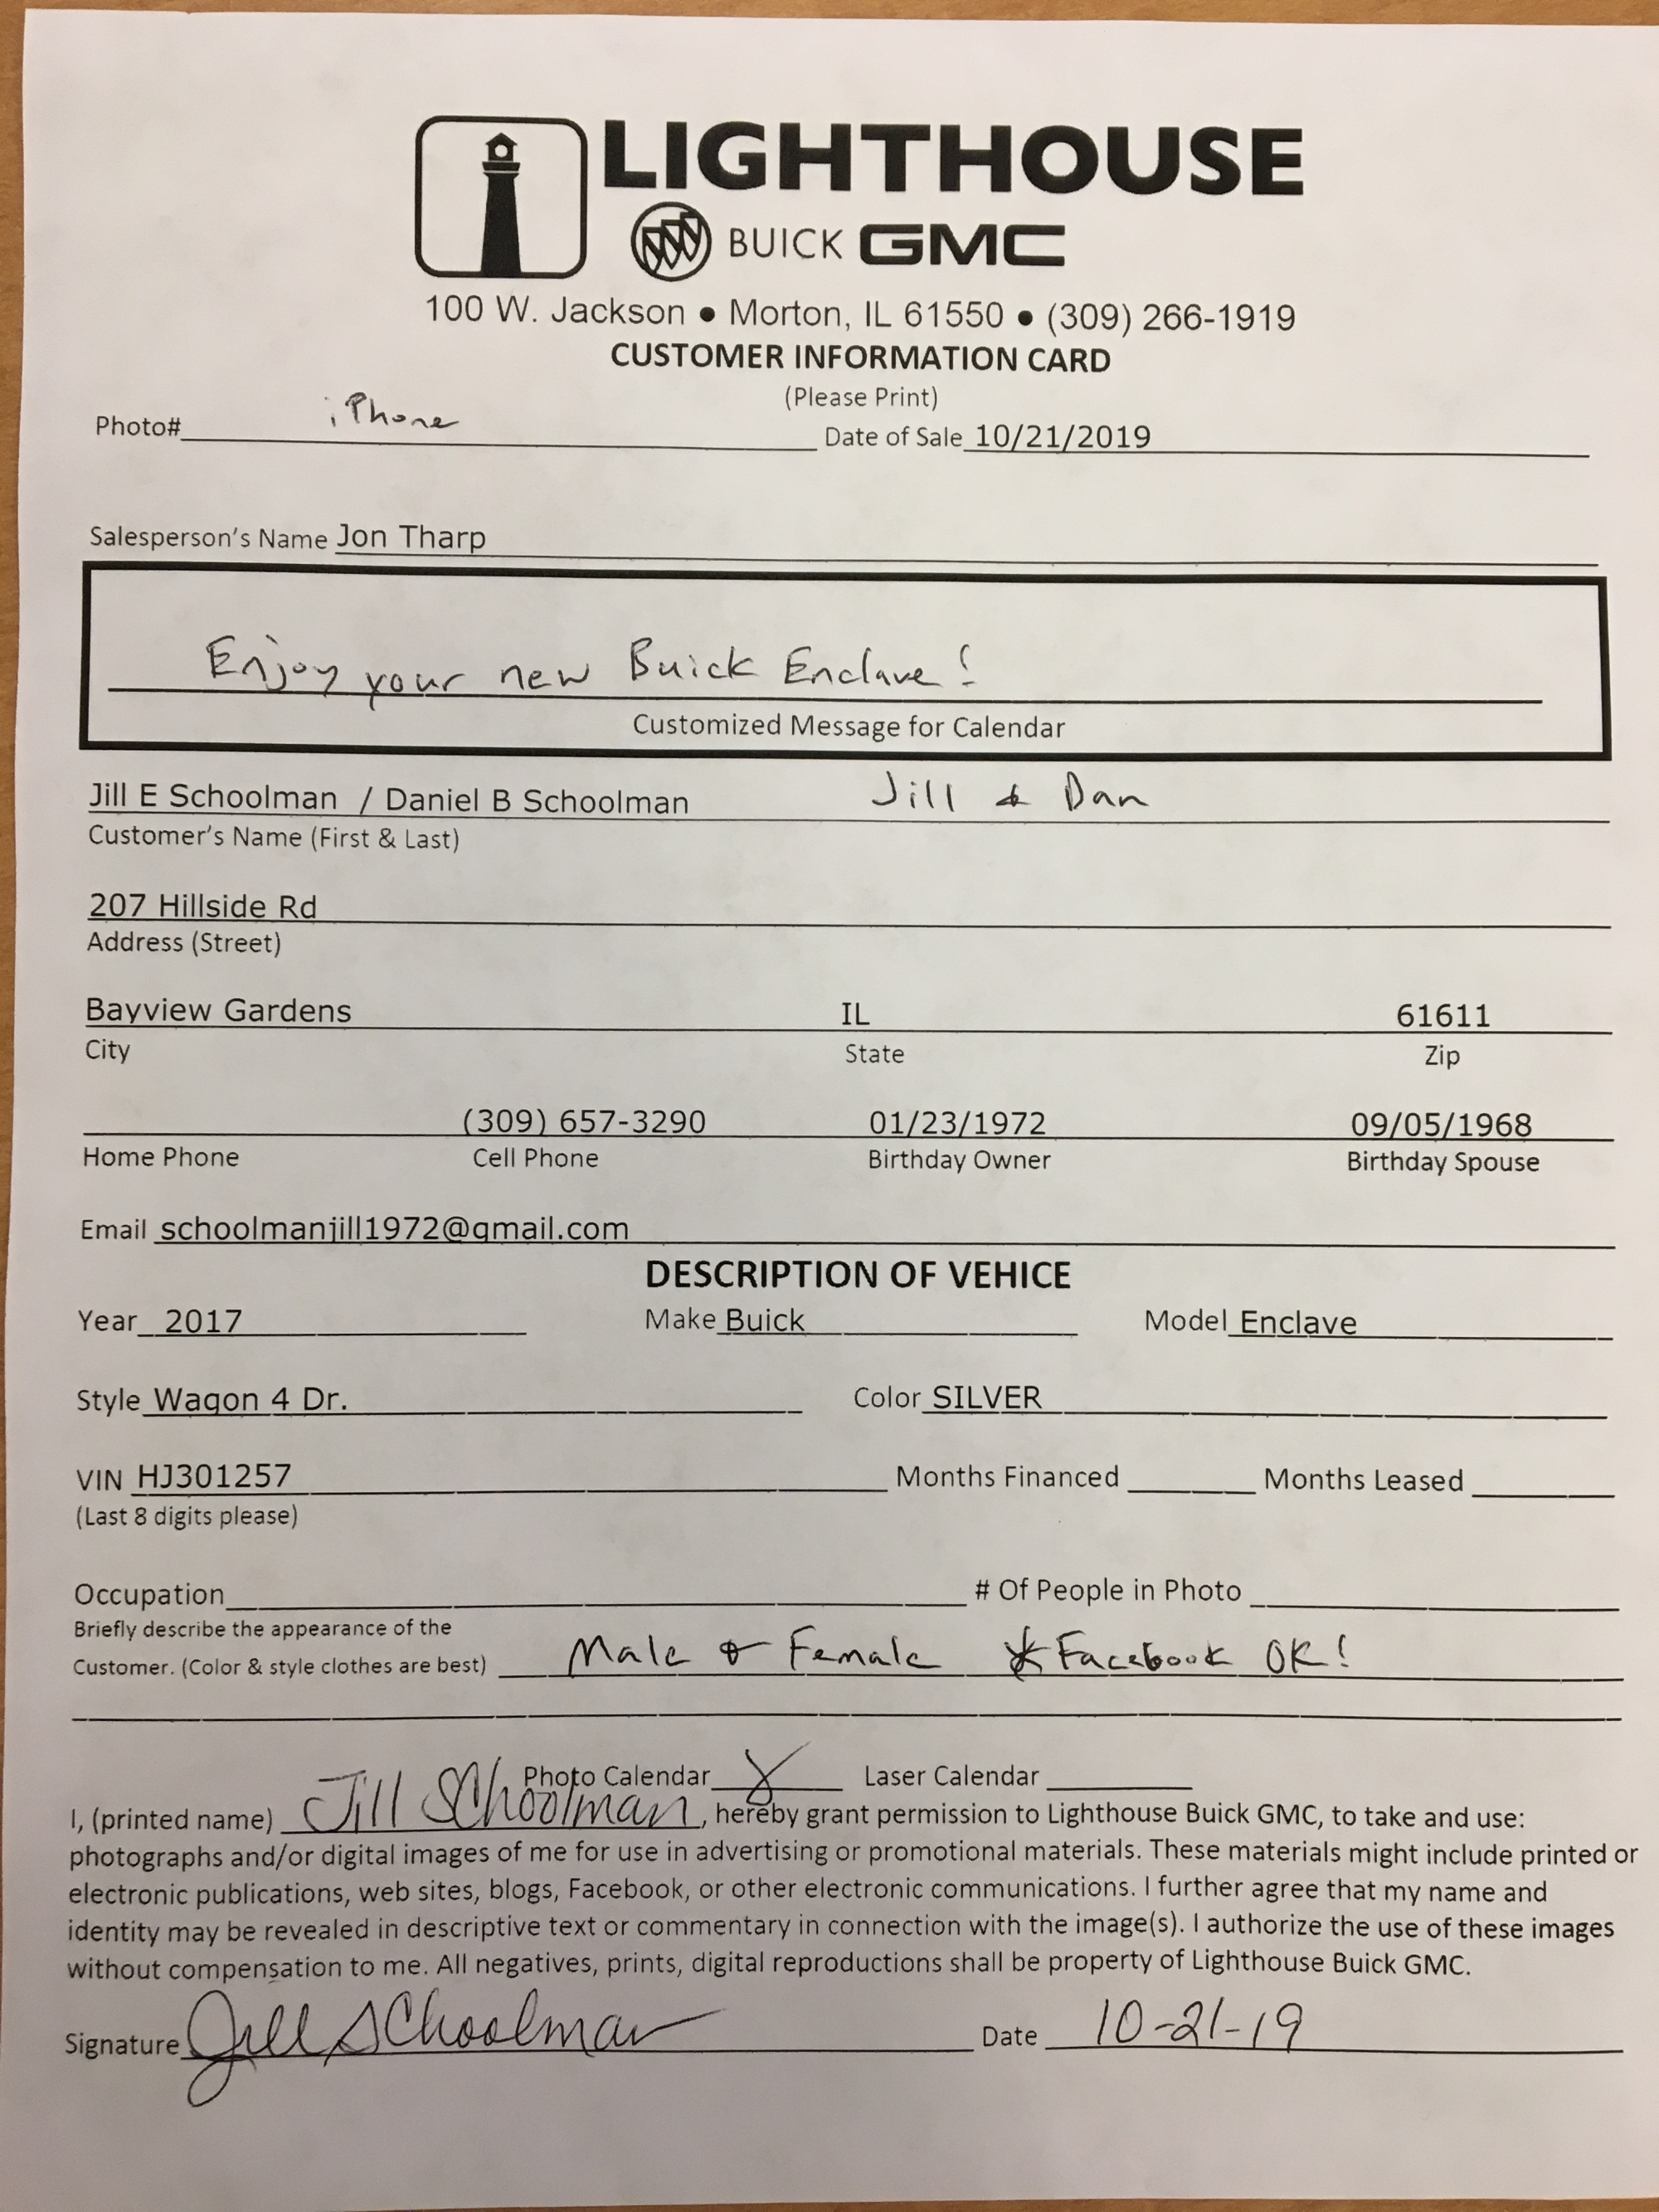 LIGHTHOUSE
BUICK GMC
100 W. Jackson • Morton, IL 61550 • (309) 266-1919
CUSTOMER INFORMATION CARD
(Please Print)
Photo# iPhone Date of Sale 10/21/2019
Salesperson's Name Jon Tharp
Enjoy your new Buick Enclave!
Customized Message for Calendar
Jill E Schoolman / Daniel B Schoolman Jill & Dan
Customer's Name (First & Last)
207 Hillside Rd
Address (Street)
Bayview Gardens IL 61611
City State Zip
(309) 657-3290 01/23/1972 09/05/1968
Home Phone Cell Phone Birthday Owner Birthday Spouse
Email schoolmanjill1972@gmail.com
DESCRIPTION OF VEHICE
Year 2017 Make Buick Model Enclave
Style Wagon 4 Dr. Color SILVER
VIN HJ301257 Months Financed Months Leased
(Last 8 digits please)
Occupation # Of People in Photo
Briefly describe the appearance of the
Customer. (Color & style clothes are best) Male & Female * Facebook OK!
Photo Calendar X Laser Calendar
I, (printed name) Jill Schoolman, hereby grant permission to Lighthouse Buick GMC, to take and use:
photographs and/or digital images of me for use in advertising or promotional materials. These materials might include printed or
electronic publications, web sites, blogs, Facebook, or other electronic communications. I further agree that my name and
identity may be revealed in descriptive text or commentary in connection with the image(s). I authorize the use of these images
without compensation to me. All negatives, prints, digital reproductions shall be property of Lighthouse Buick GMC.
Signature Jill Schoolman Date 10-21-19